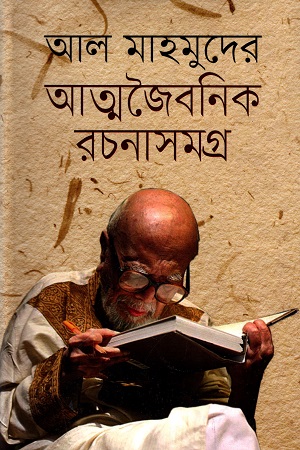 আল মাহমুদের
আত্মজৈবনিক
রচনাসমগ্র